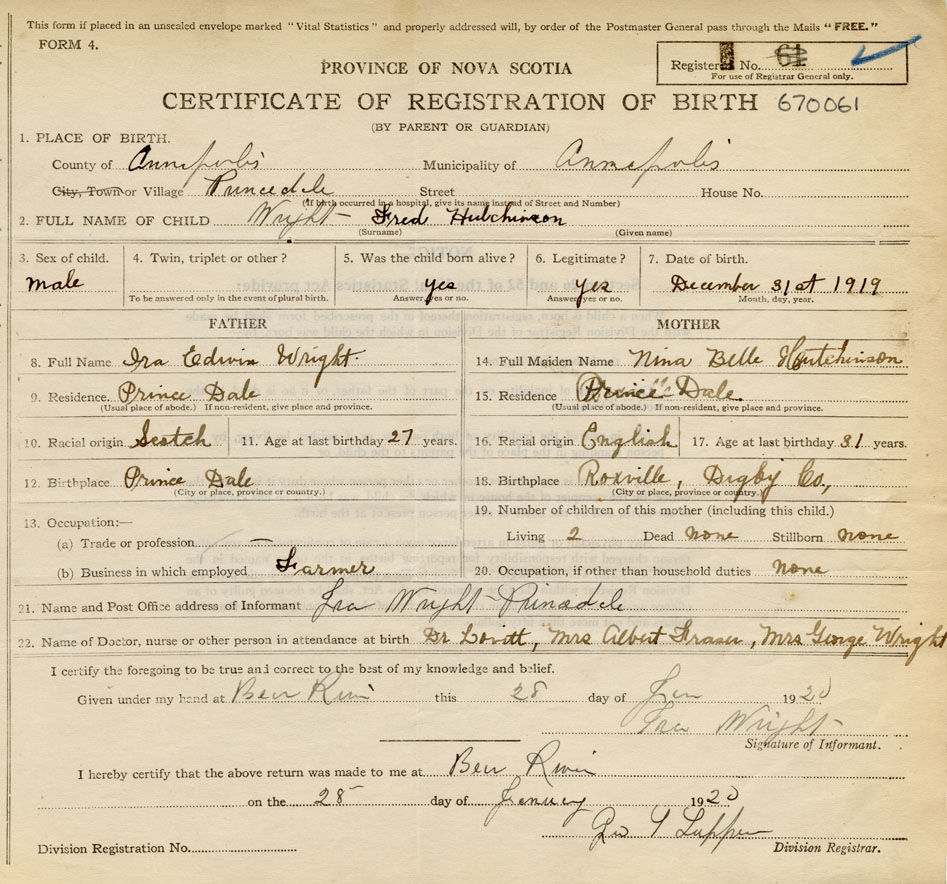 This form if placed in an unsealed envelope marked "Vital Statistics" and properly addressed will, by order of the Postmaster General pass through the Mails "FREE."
FORM 4.
Registered No. 61
For use of Registrar General only.
PROVINCE OF NOVA SCOTIA
CERTIFICATE OF REGISTRATION OF BIRTH 670061
(BY PARENT OR GUARDIAN)
1. PLACE OF BIRTH.
County of Annapolis Municipality of Annapolis
City, Town or Village Princedale Street House No.
(If birth occurred in a hospital, give its name instead of Street and Number)
2. FULL NAME OF CHILD Wright Fred Hutchinson
(Surname) (Given name)
3. Sex of child. 4. Twin, triplet or other? 5. Was the child born alive? 6. Legitimate? 7. Date of birth.
male Yes Yes December 31st 1919
To be answered only in the event of plural birth. Answer, yes or no. Answer, yes or no. Month, day, year.
FATHER MOTHER
8. Full Name Ira Edwin Wright. 14. Full Maiden Name Nina Belle Hutchinson
9. Residence. Prince Dale 15. Residence Prince Dale
(Usual place of abode.) If non-resident, give place and province. (Usual place of abode.) If non-resident, give place and province.
10. Racial origin Scotch 11. Age at last birthday 27 years. 16. Racial origin English 17. Age at last birthday 31 years.
12. Birthplace Prince Dale 18. Birthplace Roxville, Digby Co,
(City or place, province or country.) (City or place, province or country.)
13. Occupation:— 19. Number of children of this mother (including this child.)
(a) Trade or profession — Living 2 Dead none Stillborn none
(b) Business in which employed Farmer 20. Occupation, if other than household duties none
21. Name and Post Office address of Informant Ira Wright Princedale
22. Name of Doctor, nurse or other person in attendance at birth Dr Lovett, Mrs Albert Fraser, Mrs George Wright
I certify the foregoing to be true and correct to the best of my knowledge and belief.
Given under my hand at Bear River this 28 day of Jan 1920
Ira Wright
Signature of Informant.
I hereby certify that the above return was made to me at Bear River
on the 28 day of January 1920
Division Registration No. Division Registrar.